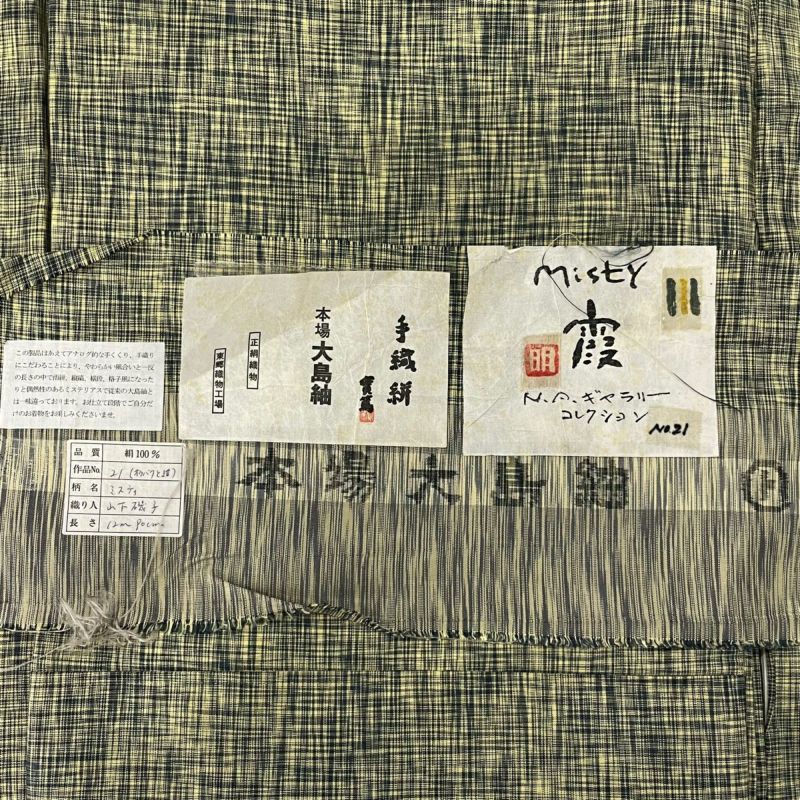 この製品はあえてアナログ的な手くくり、手織り
にこだわることにより、やわらかい風合いと一反
の長さの中で雨絣、縦縞、横段、格子風になった
りと偶然性のあるミステリアスで従来の大島紬と
は一味違っております。お仕立て段階でご自分だけ
のお着物をお楽しみくださいませ。
品質 絹100%
作品No. 21
柄名 ミスティ
織り人 山下磯子
長さ 12m 90cm
手織絣
本場大島紬
正絹織物
東郷織物工場
Misty
霞
明
N.A.ギャラリー
コレクション
No.21
本場大島紬